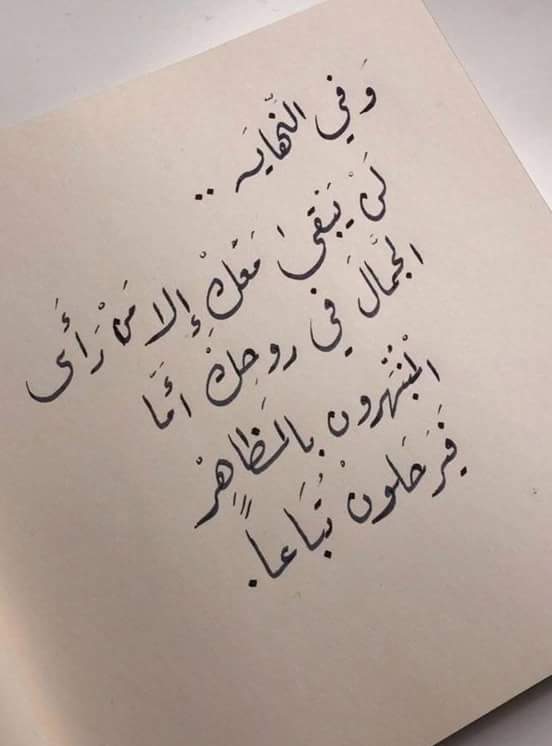 وَفي النِّهايه ..
لَنْ يَبْقىٰ مَعَكْ إلا مَنْ رَأَى
الجَمَّالَ في روحِكْ أمَّا
المُنْبَهرون بالمَظاهِرْ
فَيَرحَلونْ تُبَاعاً.